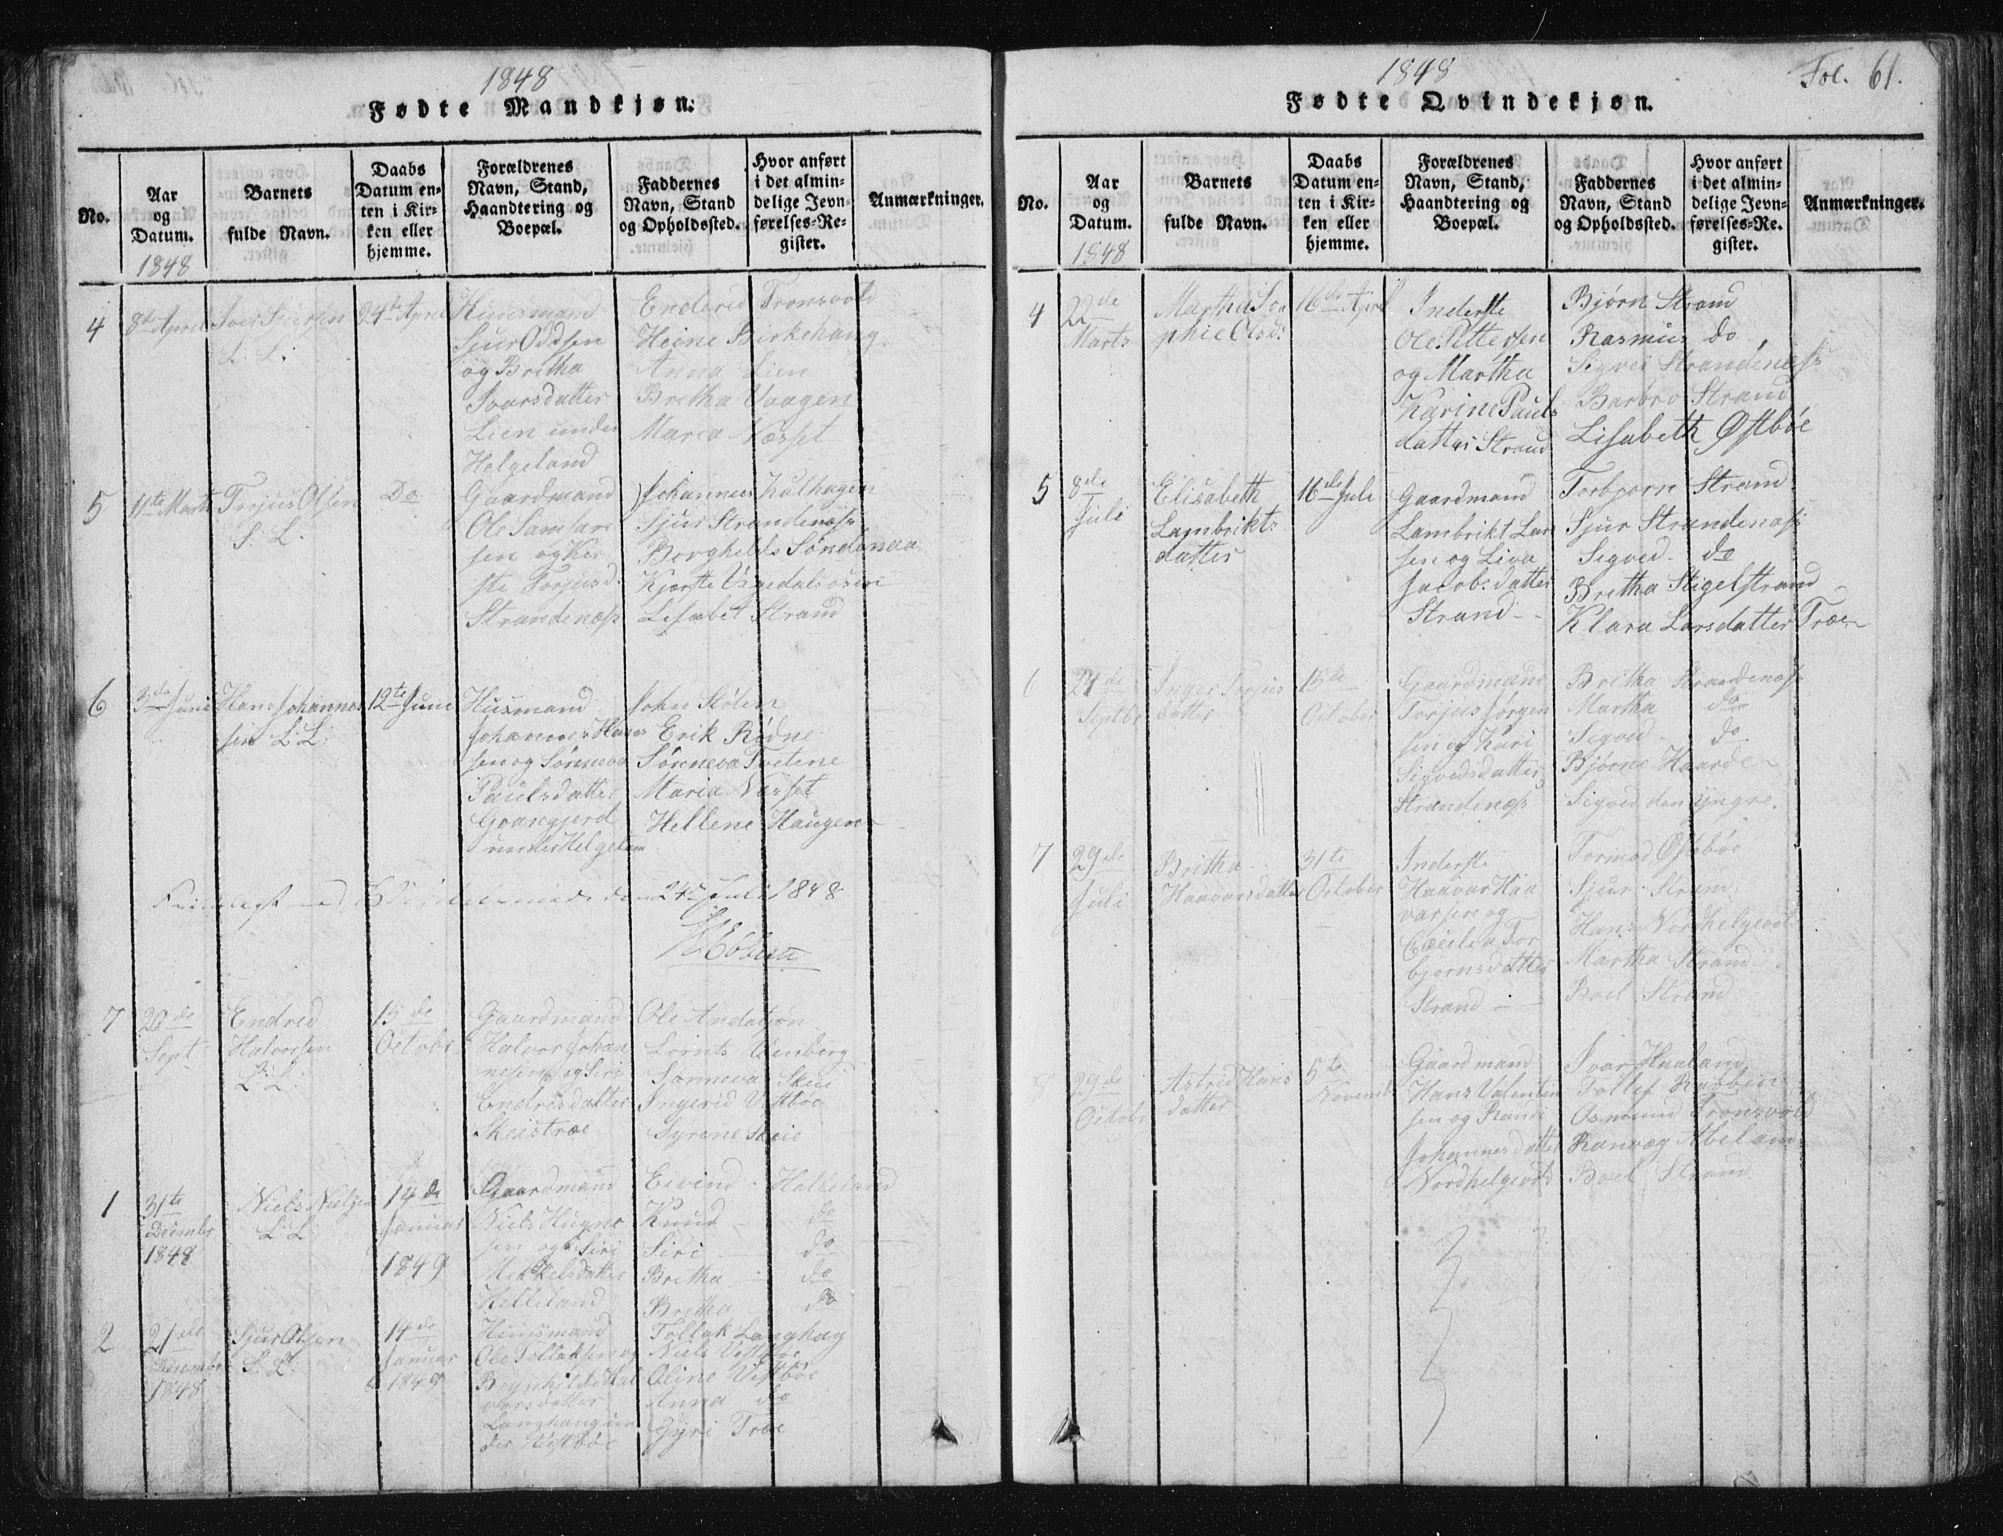 1848
Fødte Mandkjøn.
No.
Aar
og
Datum.
1848
Barnets
fulde Navn.
Daabs
Datum en-
ten i Kir-
ken eller
hjemme.
Forældrenes
Navn, Stand,
Haandtering og
Boepæl.
Faddernes
Navn, Stand
og Opholdssted.
Hvor anført
i det almin-
delige Jevn-
førelses-Re-
gister.
Anmærkninger.
4
8de April
Iver Sjursen
L. L.
24de April
Huusmand
Sjur Oddsen
og Britha
Ivarsdatter
Lien under
Helgeland
Enderid Tronsvold
Heine Birkehaug
Anna Lien
Britha Vaagen
Maria Næsset
5
11te Marts
Torjus Olsen
S. L.
Do
Gaardmand
Ole Samson
sen og Ker
ste Torjusd.
Strandenæss
Johannes Kalhagen
Sjur Strandenæss
Borghilds Søndenaa
Kjerste
Lisabet Strand
6
3de Juni
Hans Johannes
sen L. L.
12te Juni
Husmand
Johannes Hans
sen og Sønneva
Paulsdatter
under Helgeland
John Stølen
Erik Rødne
Sønneva Tvetene
Maria Næsset
Hellene Haugen
24de Juli 1848
7
20de
Sept
Endred
Halvorsen
L. L.
15de
Octobr
Gaardmand
Halvor Johan
nesen og Siri
Endrisdatter
Skeistræ
Ole
Lornts
Sønneva Skeie
Ingerid Vestbøe
Syrene Skeie
1
31te
Decembr
1848
Niels Nielsen
L. L.
14de
Januar
1849
Gaardmand
Niels
sen og Siri
Mikkelsdatter
Helleland
Eivind Helleland
Knud do
Siri do
Britha do
Britha do
2
21de
Decembr
1848
Sjur Olsen
S. L.
14de
Januar
1849
Huusmand
Ole Tollaksen og
Brynhilde Hal
vorsdatter
Langhaug un
der Vestbøe
Tollak Langhaug
Niels Vestbøe
Oline Vestbøe
Anna do
Gyri Træe
Fol. 61.
1848
Fødte Qvindekjøn.
No.
Aar
og
Datum.
1848
Barnets
fulde Navn.
Daabs
Datum en-
ten i Kir-
ken eller
hjemme.
Forældrenes
Navn, Stand,
Haandtering og
Boepæl.
Faddernes
Navn, Stand
og Opholdssted.
Hvor anført
i det almin-
delige Jevn-
førelses-Re-
gister.
Anmærkninger.
4
22de
Marts
Martha So
phie Olsd:
16de April
Inderste
Ole Pettersen
og Martha
Karine Pauls
datter Strand
Bjørn Strand
Rasmus do
Sigvei Strandenæss
Barbro Strand
Lisabeth Østbøe
5
8de
Juli
Elisabeth
Lambrikts
datter
16de Juli
Gaardmand
Lambrikt Lar
sen og Liva
Jacobsdatter
Strand
Torbjorn Strand
Sjur Strandenæss
Sigved do
Britha Stigelstrand
Klara Larsdatter Træe
6
24de
Septbr
Inger Torjus
datter
15de
October
Gaardmand
Torjus Jørgen
sen og Kari
Sigvedsdatter
Strandenæss
Britha Strandenæss
Martha do
Sigved do
Bjørne Haarde
Sigved den yngre.
7
29de
Juli
Britha
Haavarsdatter
31te
October
Inderste
Haavar Haa
varsen og
Cecilia Tor
bjørnsdatter
Strand
Tormod Østbøe
Sjur Strand
Hans Nordhelgevold
Martha Strand
Boel Strand
8
29de
Octobr
Astrid Hans
datter
5te
Novembr
Gaardmand
Hans Valentin
sen og Randi
Johannesdatter
Nordhelgevold
Ivar Haaland
Tollef
Osmund Tronsvold
Ranvag
Boel Strand